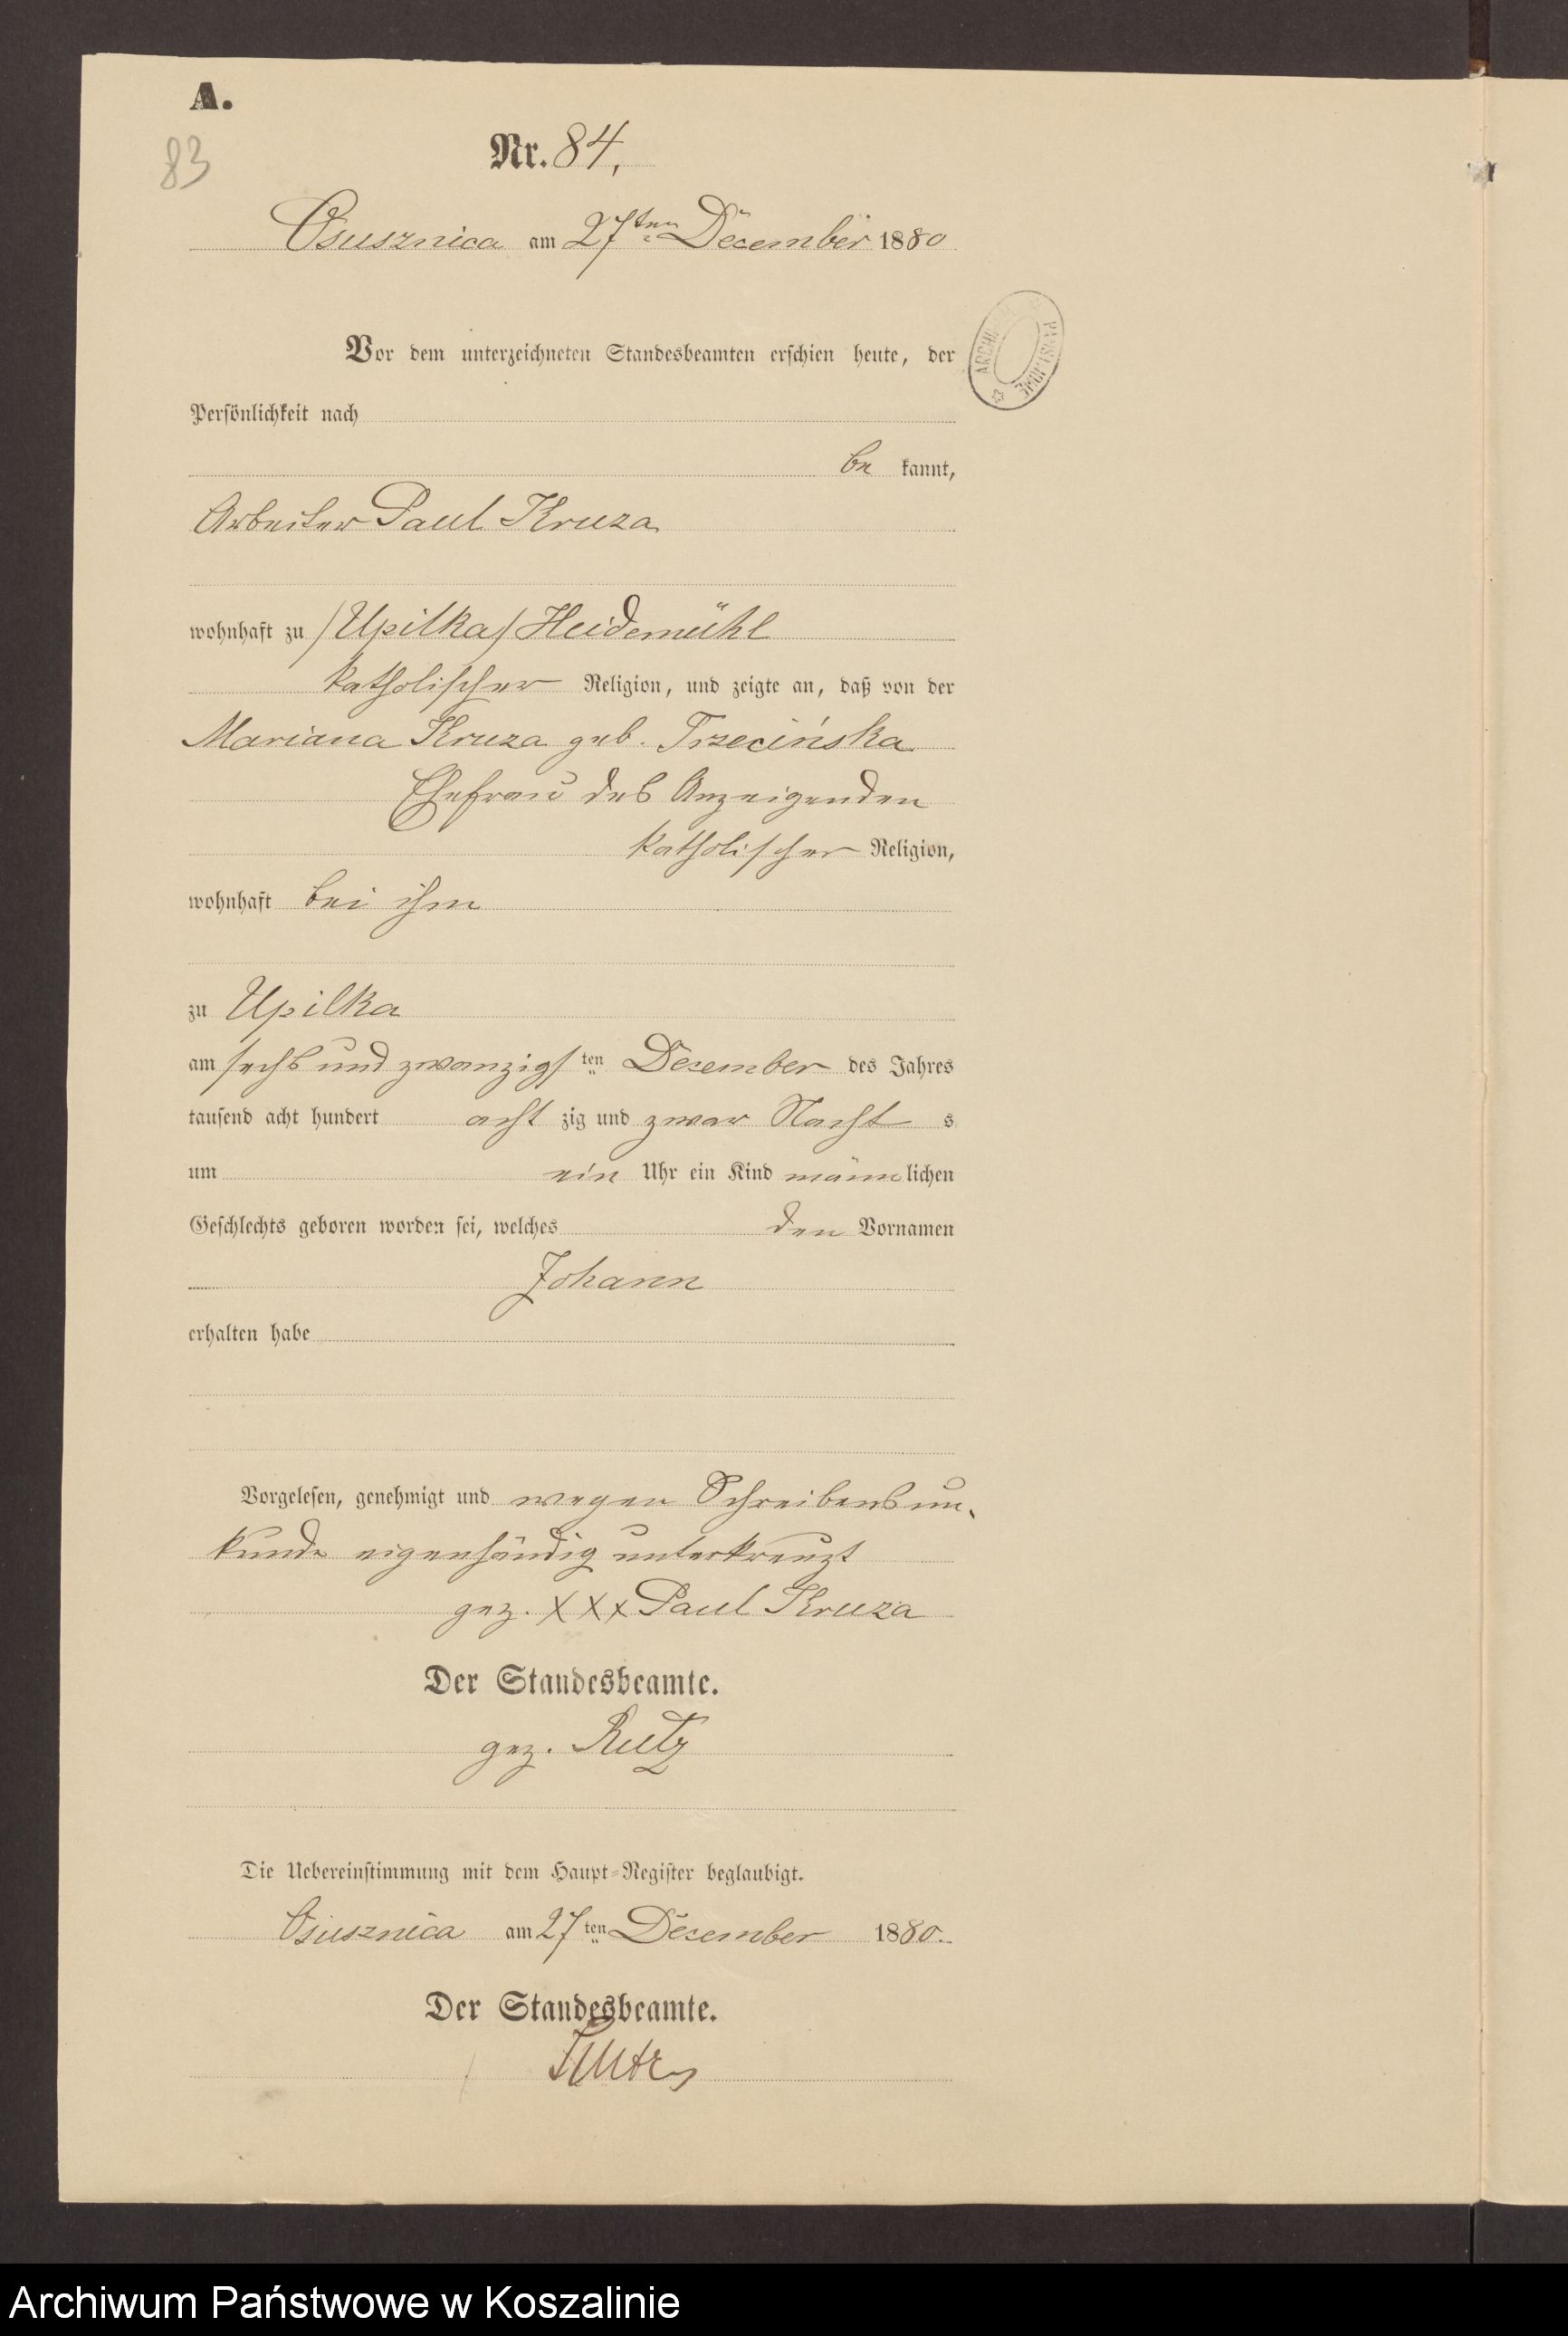 A.
83
Nr. 84,
Osusznica am 27ten December 1880
Vor dem unterzeichneten Standesbeamten erschien heute, der
Persönlichkeit nach
be kannt,
Arbeiter Paul Kruza
wohnhaft zu /Upilka/ Heidemühl
katholischer Religion, und zeigte an, daß von der
Mariana Kruza geb. Trzecińska
Ehefrau des Anzeigenden
katholischer Religion,
wohnhaft bei ihm
zu Upilka
am sechs und zwanzigs ten December des Jahres
tausend acht hundert acht zig und zwar Nacht s
um ein Uhr ein Kind männ lichen
Geschlechts geboren worden sei, welches den Vornamen
Johann
erhalten habe
Vorgelesen, genehmigt und wegen Schreibensun-
kunde eigenhändig unterkreuzt
gez. XXX Paul Kruza
Der Standesbeamte.
gez. Rutz
Die Uebereinstimmung mit dem Haupt-Register beglaubigt.
Osusznica am 27ten December 1880.
Der Standesbeamte.
Rutz
Archiwum Państwowe w Koszalinie